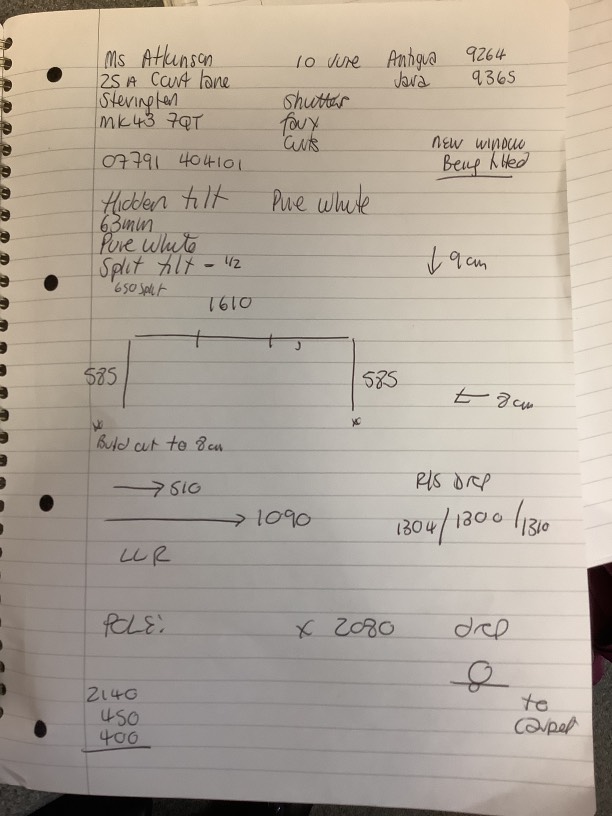 Ms Atkinson 10 June Antigua 9264
25 A Court lane Java 9365
Stevington Shutter
MK43 7QT faux
Curts new window
07791 404101 Being fitted
Hidden tilt Pure white
63mm
Pure white
Split tilt - 1/2 ↓ 9cm
650 split
1610
585 585
← 8cm
Build out to 8cm
→ 510 R/S DRP
→ 1090 1304/1300/1310
LLR
POLE: x 2080 drp
2140 to
450 carpet
400